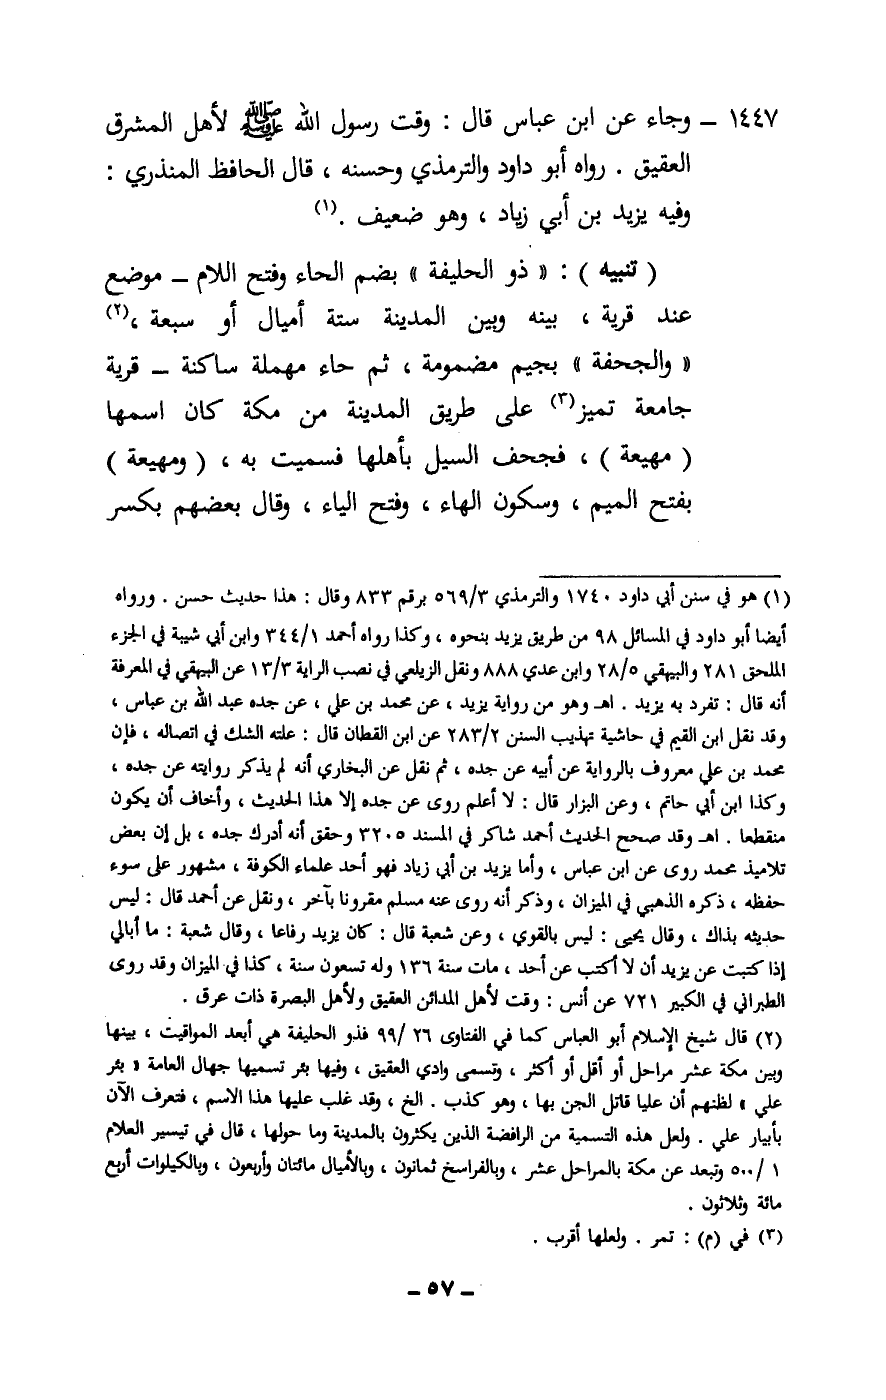 ١٤٤٧ ــ وجاء عن ابن عباس قال : وقت رسول الله ﷺ لأهل المشرق
العقيق . رواه أبو داود والترمذي وحسنه ، قال الحافظ المنذري :
وفيه يزيد بن أبي زياد ، وهو ضعيف .(١)
( تنبيه ) : « ذو الحليفة » بضم الحاء وفتح اللام ــ موضع
عند قرية ، بينه وبين المدينة ستة أميال أو سبعة ،(٢)
« والجحفة » بجيم مضمومة ، ثم حاء مهملة ساكنة ــ قرية
جامعة تميز(٣) على طريق المدينة من مكة كان اسمها
( مهيعة ) ، فجحف السيل بأهلها فسميت به ، ( ومهيعة )
بفتح الميم ، وسكون الهاء ، وفتح الياء ، وقال بعضهم بكسر
(١) هو في سنن أبي داود ١٧٤٠ والترمذي ٥٦٩/٣ برقم ٨٣٣ وقال : هذا حديث حسن . ورواه
أيضا أبو داود في المسائل ٩٨ من طريق يزيد بنحوه ، وكذا رواه أحمد ٣٤٤/١ وابن أبي شيبة في الجزء
الملحق ٢٨١ والبيهقي ٢٨/٥ وابن عدي ٨٨٨ ونقل الزيلعي في نصب الراية ١٣/٣ عن البيهقي في المعرفة
أنه قال : تفرد به يزيد . اهـ وهو من رواية يزيد ، عن محمد بن علي ، عن جده عبد الله بن عباس ،
وقد نقل ابن القيم في حاشية تهذيب السنن ٢٨٣/٢ عن ابن القطان قال : علته الشك في اتصاله ، فإن
محمد بن علي معروف بالرواية عن أبيه عن جده ، ثم نقل عن البخاري أنه لم يذكر روايته عن جده ،
وكذا ابن أبي حاتم ، وعن البزار قال : لا أعلم روى عن جده إلا هذا الحديث ، وأخاف أن يكون
منقطعا . اهـ وقد صحح الحديث أحمد شاكر في المسند ٣٢٠٥ وحقق أنه أدرك جده ، بل إن بعض
تلاميذ محمد روى عن ابن عباس ، وأما يزيد بن أبي زياد فهو أحد علماء الكوفة ، مشهور على سوء
حفظه ، ذكره الذهبي في الميزان ، وذكر أنه روى عنه مسلم مقرونا بآخر ، ونقل عن أحمد قال : ليس
حديثه بذاك ، وقال يحيى : ليس بالقوي ، وعن شعبة قال : كان يزيد رفاعا ، وقال شعبة : ما أبالي
إذا كتبت عن يزيد أن لا أكتب عن أحد ، مات سنة ١٣٦ وله تسعون سنة ، كذا في الميزان وقد روى
الطبراني في الكبير ٧٢١ عن أنس : وقت لأهل المدائن العقيق ولأهل البصرة ذات عرق .
(٢) قال شيخ الإسلام أبو العباس كما في الفتاوى ٢٦ /٩٩ فذو الحليفة هي أبعد المواقيت ، بينها
وبين مكة عشر مراحل أو أقل أو أكثر ، وتسمى وادي العقيق ، وفيها بئر تسميها جهال العامة « بئر
علي » لظنهم أن عليا قاتل الجن بها ، وهو كذب . الخ ، وقد غلب عليها هذا الاسم ، فتعرف الآن
بأبيار علي . ولعل هذه التسمية من الرافضة الذين يكثرون بالمدينة وما حولها ، قال في تيسير العلام
١ /٥٠٠ وتبعد عن مكة بالمراحل عشر ، وبالفراسخ ثمانون ، وبالأميال مائتان وأربعون ، وبالكيلوات أربع
مائة وثلاثون .
(٣) في (م) : تمر . ولعلها أقرب .
ــ ٥٧ ــ